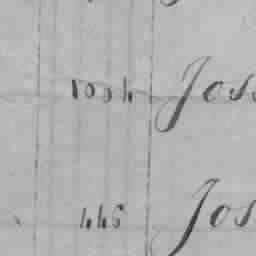 1004 Jos
446 Jos